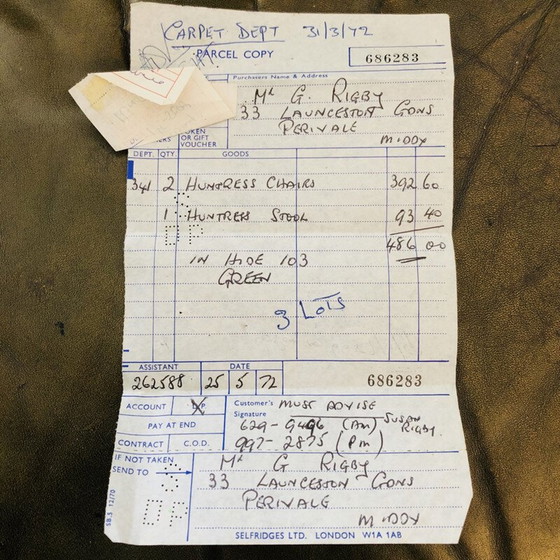 CARPET DEPT 31/3/72
PARCEL COPY 686283
Purchasers Name & Address
Mr G. RIGBY
33 LAUNCESTON GDNS
PERIVALE
MIDDX
TOKEN
OR GIFT
VOUCHER
DEPT. QTY GOODS
341 2 HUNTRESS CHAIRS 392 60
1 HUNTRESS STOOL 93 40
486 00
IN HIDE 103
GREEN
3 LOTS
ASSISTANT DATE
262588 25 5 72 686283
ACCOUNT
Customer's Signature MUST ADVISE
PAY AT END 629-9496 (AM) SUSAN RIGBY
CONTRACT C.O.D. 997-2875 (PM)
IF NOT TAKEN
SEND TO
Mr G RIGBY
33 LAUNCESTON GDNS
PERIVALE
MIDDX
SB.3 12/70
SELFRIDGES LTD. LONDON W1A 1AB